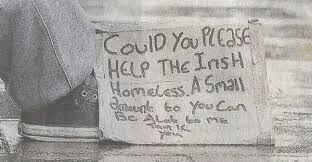 COULD YOU PLEASE
HELP THE IRISH
HOMELESS. A SMALL
amount to you Can
Be ALOT to me
THANK
you